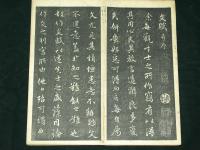 文賦并序
余每觀才士之所作竊有以得
其用心夫其放言遣辭良多變
矣妍蚩好惡可得而言每自屬
文尤見其情恒患意不稱物文
不逮意蓋非知之難能之難也
故作文賦以述先士之盛藻因論
作文之利害所由他日殆可謂曲